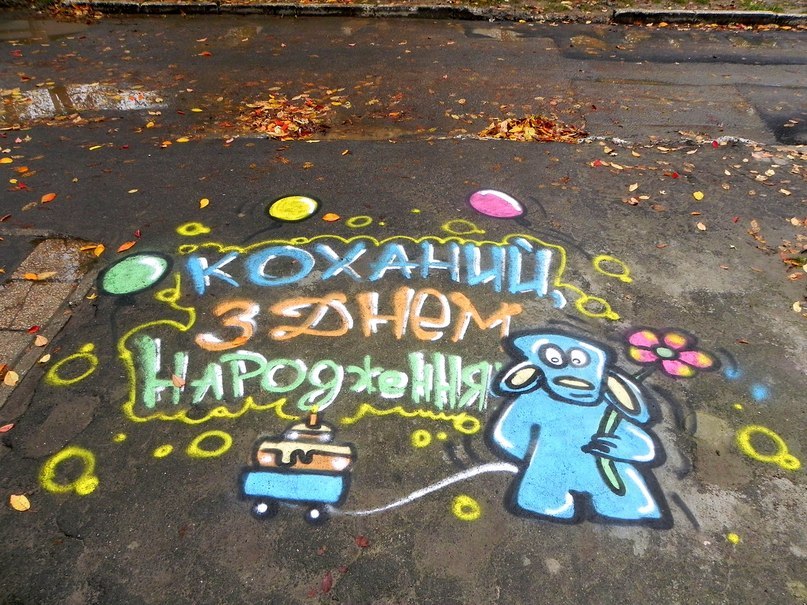 Коханий,
з Днем
Народження